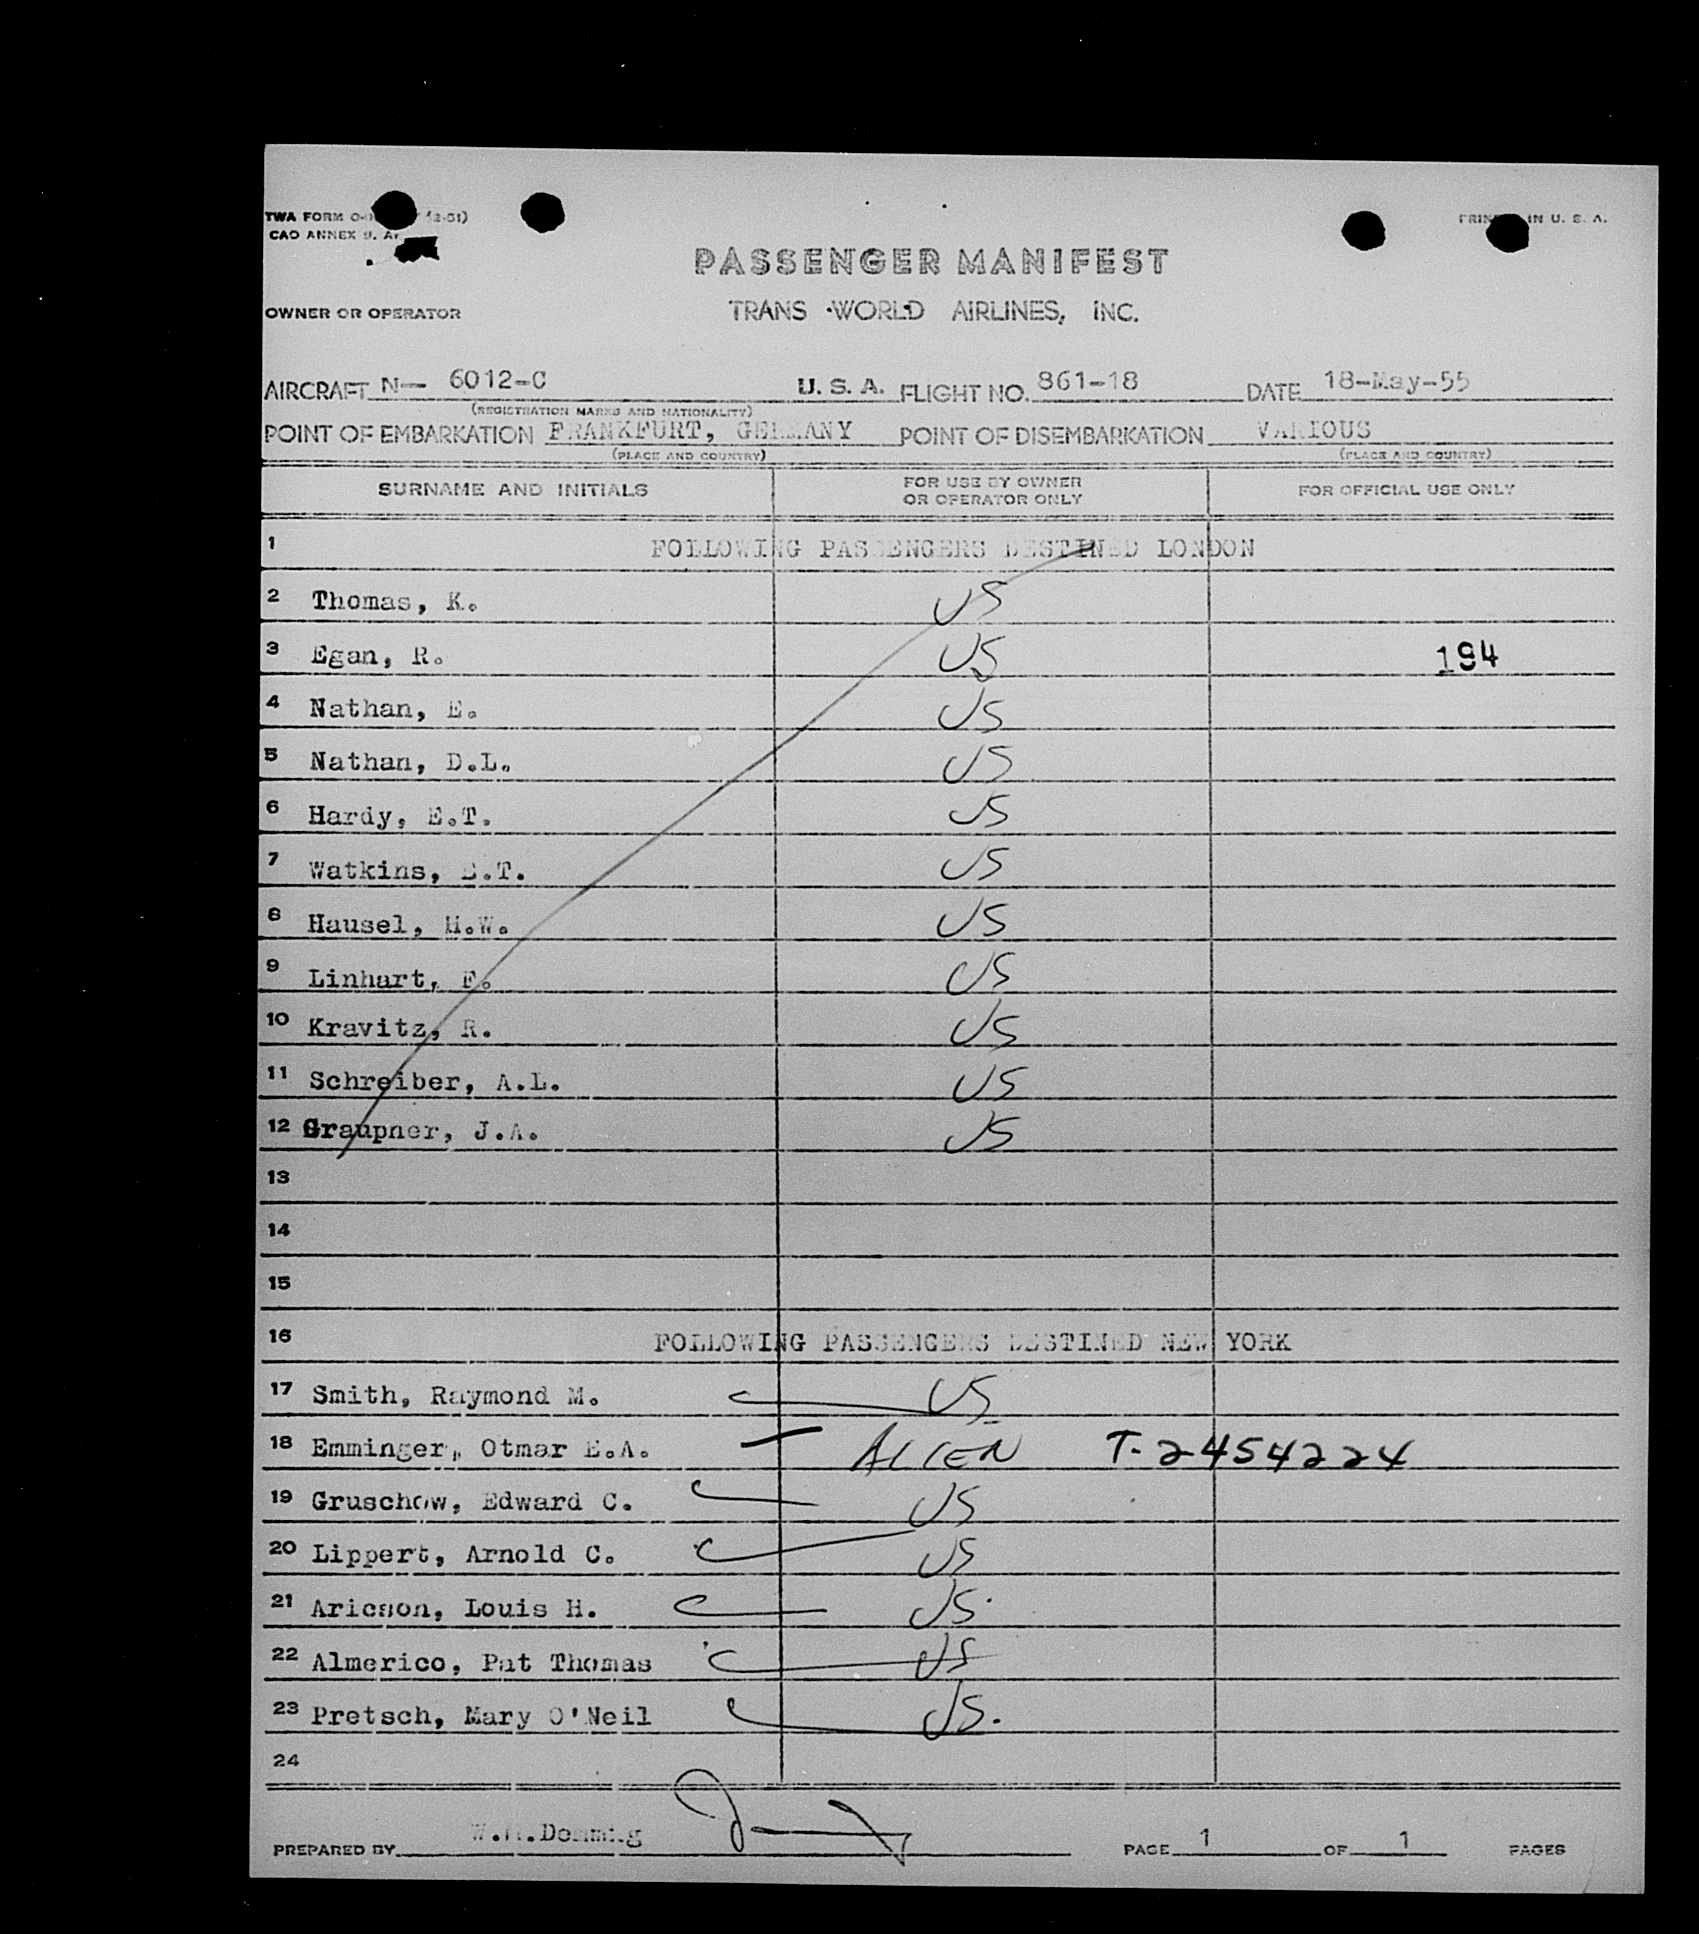 TWA FORM O- (2-51)
PRIN IN U. S. A.
CAO ANNEX 9, A
PASSENGER MANIFEST
OWNER OR OPERATOR TRANS WORLD AIRLINES, INC.
AIRCRAFT N— 6012-C U. S. A. FLIGHT NO. 861-18 DATE 18-May-55
(REGISTRATION MARKS AND NATIONALITY)
POINT OF EMBARKATION FRANKFURT, GERMANY POINT OF DISEMBARKATION VARIOUS
(PLACE AND COUNTRY) (PLACE AND COUNTRY)
SURNAME AND INITIALS FOR USE BY OWNER OR OPERATOR ONLY FOR OFFICIAL USE ONLY
1 FOLLOWING PASSENGERS DESTINED LONDON
2 Thomas, K. US
3 Egan, R. US 194
4 Nathan, E. US
5 Nathan, D.L. US
6 Hardy, E.T. US
7 Watkins, E.T. US
8 Hausel, M.W. US
9 Linhart, F. US
10 Kravitz, R. US
11 Schreiber, A.L. US
12 Graupner, J.A. US
13
14
15
16 FOLLOWING PASSENGERS DESTINED NEW YORK
17 Smith, Raymond M. US
18 Emminger, Otmar E.A. ALIEN T-2454224
19 Gruschow, Edward C. US
20 Lippert, Arnold C. US
21 Aricson, Louis H. US.
22 Almerico, Pat Thomas US
23 Pretsch, Mary O'Neil US.
24
PREPARED BY PAGE 1 OF 1 PAGES